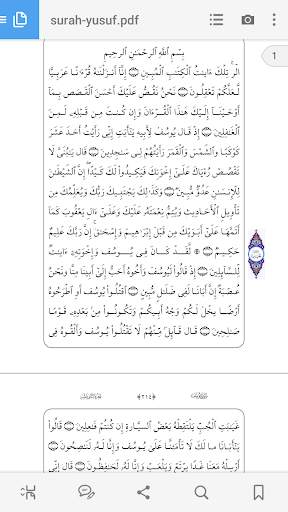 surah-yusuf.pdf
1
بِسْمِ ٱللَّهِ ٱلرَّحْمَٰنِ ٱلرَّحِيمِ
الٓر ۚ تِلْكَ ءَايَٰتُ ٱلْكِتَٰبِ ٱلْمُبِينِ ۝ إِنَّآ أَنزَلْنَٰهُ قُرْءَٰنًا عَرَبِيًّا
لَّعَلَّكُمْ تَعْقِلُونَ ۝ نَحْنُ نَقُصُّ عَلَيْكَ أَحْسَنَ ٱلْقَصَصِ بِمَآ
أَوْحَيْنَآ إِلَيْكَ هَٰذَا ٱلْقُرْءَانَ وَإِن كُنتَ مِن قَبْلِهِۦ لَمِنَ
ٱلْغَٰفِلِينَ ۝ إِذْ قَالَ يُوسُفُ لِأَبِيهِ يَٰٓأَبَتِ إِنِّى رَأَيْتُ أَحَدَ عَشَرَ
كَوْكَبًا وَٱلشَّمْسَ وَٱلْقَمَرَ رَأَيْتُهُمْ لِى سَٰجِدِينَ ۝ قَالَ يَٰبُنَىَّ لَا
تَقْصُصْ رُءْيَاكَ عَلَىٰٓ إِخْوَتِكَ فَيَكِيدُوا۟ لَكَ كَيْدًا ۖ إِنَّ ٱلشَّيْطَٰنَ
لِلْإِنسَٰنِ عَدُوٌّ مُّبِينٌ ۝ وَكَذَٰلِكَ يَجْتَبِيكَ رَبُّكَ وَيُعَلِّمُكَ مِن
تَأْوِيلِ ٱلْأَحَادِيثِ وَيُتِمُّ نِعْمَتَهُۥ عَلَيْكَ وَعَلَىٰٓ ءَالِ يَعْقُوبَ كَمَآ
أَتَمَّهَا عَلَىٰٓ أَبَوَيْكَ مِن قَبْلُ إِبْرَٰهِيمَ وَإِسْحَٰقَ ۚ إِنَّ رَبَّكَ عَلِيمٌ
حَكِيمٌ ۝ ۞ لَّقَدْ كَانَ فِى يُوسُفَ وَإِخْوَتِهِۦٓ ءَايَٰتٌ
لِّلسَّآئِلِينَ ۝ إِذْ قَالُوا۟ لَيُوسُفُ وَأَخُوهُ أَحَبُّ إِلَىٰٓ أَبِينَا مِنَّا وَنَحْنُ
عُصْبَةٌ إِنَّ أَبَانَا لَفِى ضَلَٰلٍ مُّبِينٍ ۝ ٱقْتُلُوا۟ يُوسُفَ أَوِ ٱطْرَحُوهُ
أَرْضًا يَخْلُ لَكُمْ وَجْهُ أَبِيكُمْ وَتَكُونُوا۟ مِنۢ بَعْدِهِۦ قَوْمًا
صَٰلِحِينَ ۝ قَالَ قَآئِلٌ مِّنْهُمْ لَا تَقْتُلُوا۟ يُوسُفَ وَأَلْقُوهُ فِى
﴿٢١٤﴾
غَيَٰبَتِ ٱلْجُبِّ يَلْتَقِطْهُ بَعْضُ ٱلسَّيَّارَةِ إِن كُنتُمْ فَٰعِلِينَ ۝ قَالُوا۟
يَٰٓأَبَانَا مَا لَكَ لَا تَأْمَ۫نَّا عَلَىٰ يُوسُفَ وَإِنَّا لَهُۥ لَنَٰصِحُونَ ۝
أَرْسِلْهُ مَعَنَا غَدًا يَرْتَعْ وَيَلْعَبْ وَإِنَّا لَهُۥ لَحَٰفِظُونَ ۝ قَالَ إِنِّى